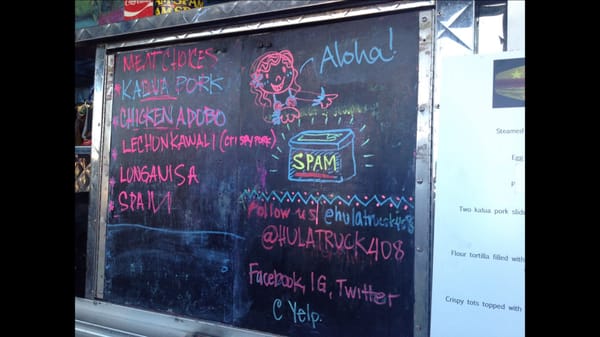 Coca-Cola
MEAT CHOICES
KALUA PORK
CHICKEN ADOBO
LECHON KAWALI (CRISPY PORK)
LONGANISA
SPAM
Aloha!
SPAM
Follow us! @hulatruck408
@HULATRUCK408
Facebook, IG, Twitter
C Yelp.
Steamed
Egg
P
Two kalua pork slide
Flour tortilla filled with
Crispy tots topped with